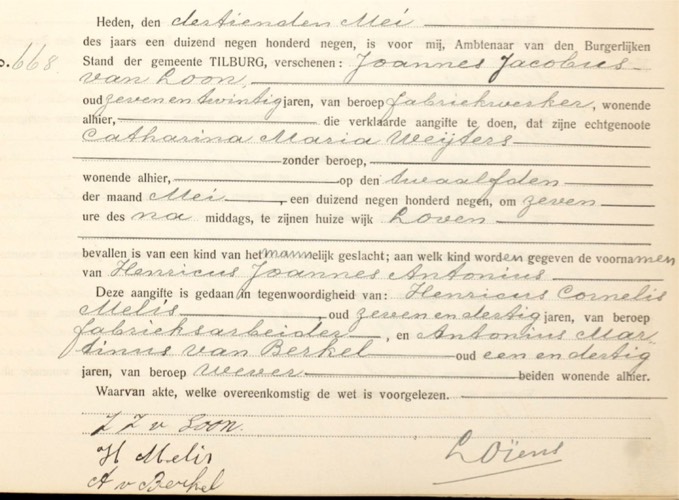 Heden, den dertienden Mei
des jaars een duizend negen honderd negen, is voor mij, Ambtenaar van den Burgerlijken
o. 668 Stand der gemeente TILBURG, verschenen: Joannes Jacobus
van Loon,
oud zevenentwintig jaren, van beroep fabriekwerker, wonende
alhier, die verklaarde aangifte te doen, dat zijne echtgenoote
Catharina Maria Weijters
zonder beroep,
wonende alhier, op den twaalfden
der maand Mei, een duizend negen honderd negen, om zeven
ure des na middags, te zijnen huize wijk Loven
bevallen is van een kind van het mannelijk geslacht; aan welk kind worden gegeven de voornamen
van Henricus Joannes Antonius
Deze aangifte is gedaan in tegenwoordigheid van: Henricus Cornelis
Melis, oud zevenendertig jaren, van beroep
fabrieksarbeider, en Antonius Mar-
tinus van Berkel oud een en dertig
jaren, van beroep wever beiden wonende alhier.
Waarvan akte, welke overeenkomstig de wet is voorgelezen.
J J v Loon.
H Melis
A v Berkel